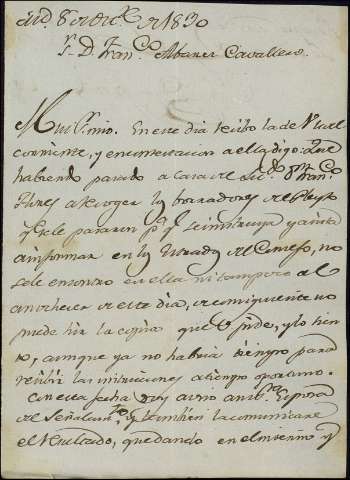 8 de Dic.e de 1830
S. D. Fran.co Abaner Cavallero.
Muy S.r mio. En este dia recibo la de V. del
corriente, y en contestacion a ella digo: Que
habiendo pasado a casa del Lic.do D.n Fran.co
Flores a recoger los borradores del Pleyto
q.e se le pasaron p.a q.e se instruya y asista
a informar en los Estrados del Consejo, no
se le encontro en ella ni tampoco al
anochecer de este dia, de consiguiente no
puede hir la copia que V. pide, y lo sien
to, aunque ya no habria tiempo para
recibir las instrucciones a tiempo oportuno.
Con esta fecha doy aviso a mi S.ra Esposa
del Señalam.to y tambien la comunicaré
el resultado, quedando en el mismo y